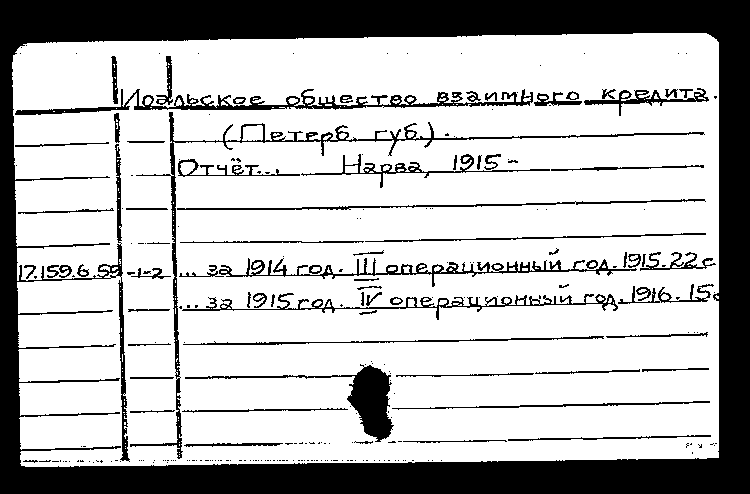 Иоальское общество взаимного кредита.
(Петерб. губ.).
Отчёт... Нарва, 1915-
17.159.6.59 -1-2 ... за 1914 год. III операционный год. 1915. 22 с
... за 1915 год. IV операционный год. 1916. 15с